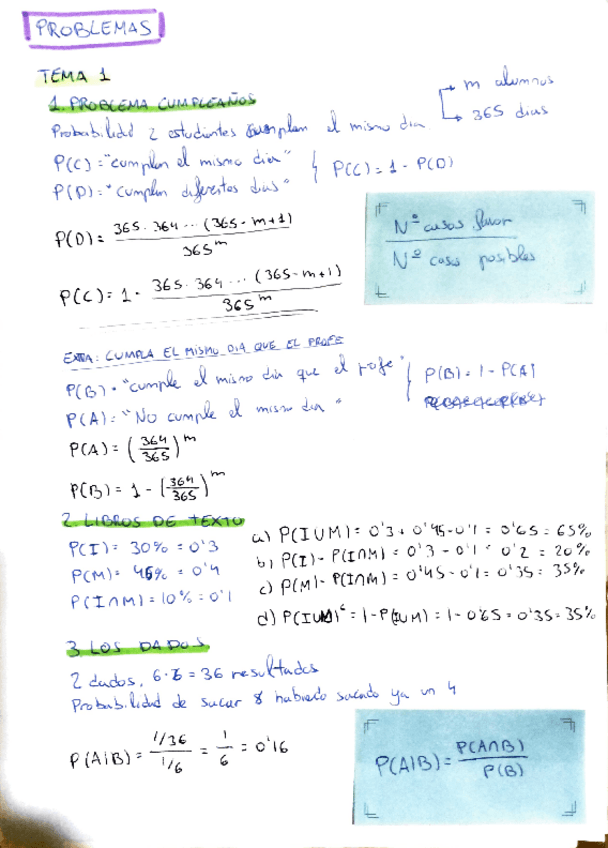 PROBLEMAS
TEMA 1
1. PROBLEMA CUMPLEAÑOS
Probabilidad 2 estudiantes cumplan el mismo día
m alumnos
365 días
P(C) = "cumplen el mismo día"
P(D) = "cumplen diferentes días"
P(C) = 1 - P(D)
P(D) = 365 · 364 ··· (365 - m + 1) / 365^m
Nº casos favor
Nº casos posibles
P(C) = 1 - 365 · 364 ... (365 - m + 1) / 365^m
EXTRA: CUMPLA EL MISMO DIA QUE EL PROFE
P(B) = "cumple el mismo día que el profe"
P(B) = 1 - P(A)
P(A) = "No cumple el mismo día"
P(A) = (364/365)^m
P(B) = 1 - (364/365)^m
2. LIBROS DE TEXTO
P(I) = 30% = 0'3
P(M) = 45% = 0'4
P(I∩M) = 10% = 0'1
a) P(I∪M) = 0'3 + 0'45 - 0'1 = 0'65 = 65%
b) P(I) - P(I∩M) = 0'3 - 0'1 = 0'2 = 20%
c) P(M) - P(I∩M) = 0'45 - 0'1 = 0'35 = 35%
d) P(I∪M)^c = 1 - P(I∪M) = 1 - 0'65 = 0'35 = 35%
3. LOS DADOS
2 dados, 6 · 6 = 36 resultados
Probabilidad de sacar 8 habiendo sacado ya un 4
P(A|B) = 1/36 / 1/6 = 1/6 = 0'16
P(A|B) = P(A∩B) / P(B)